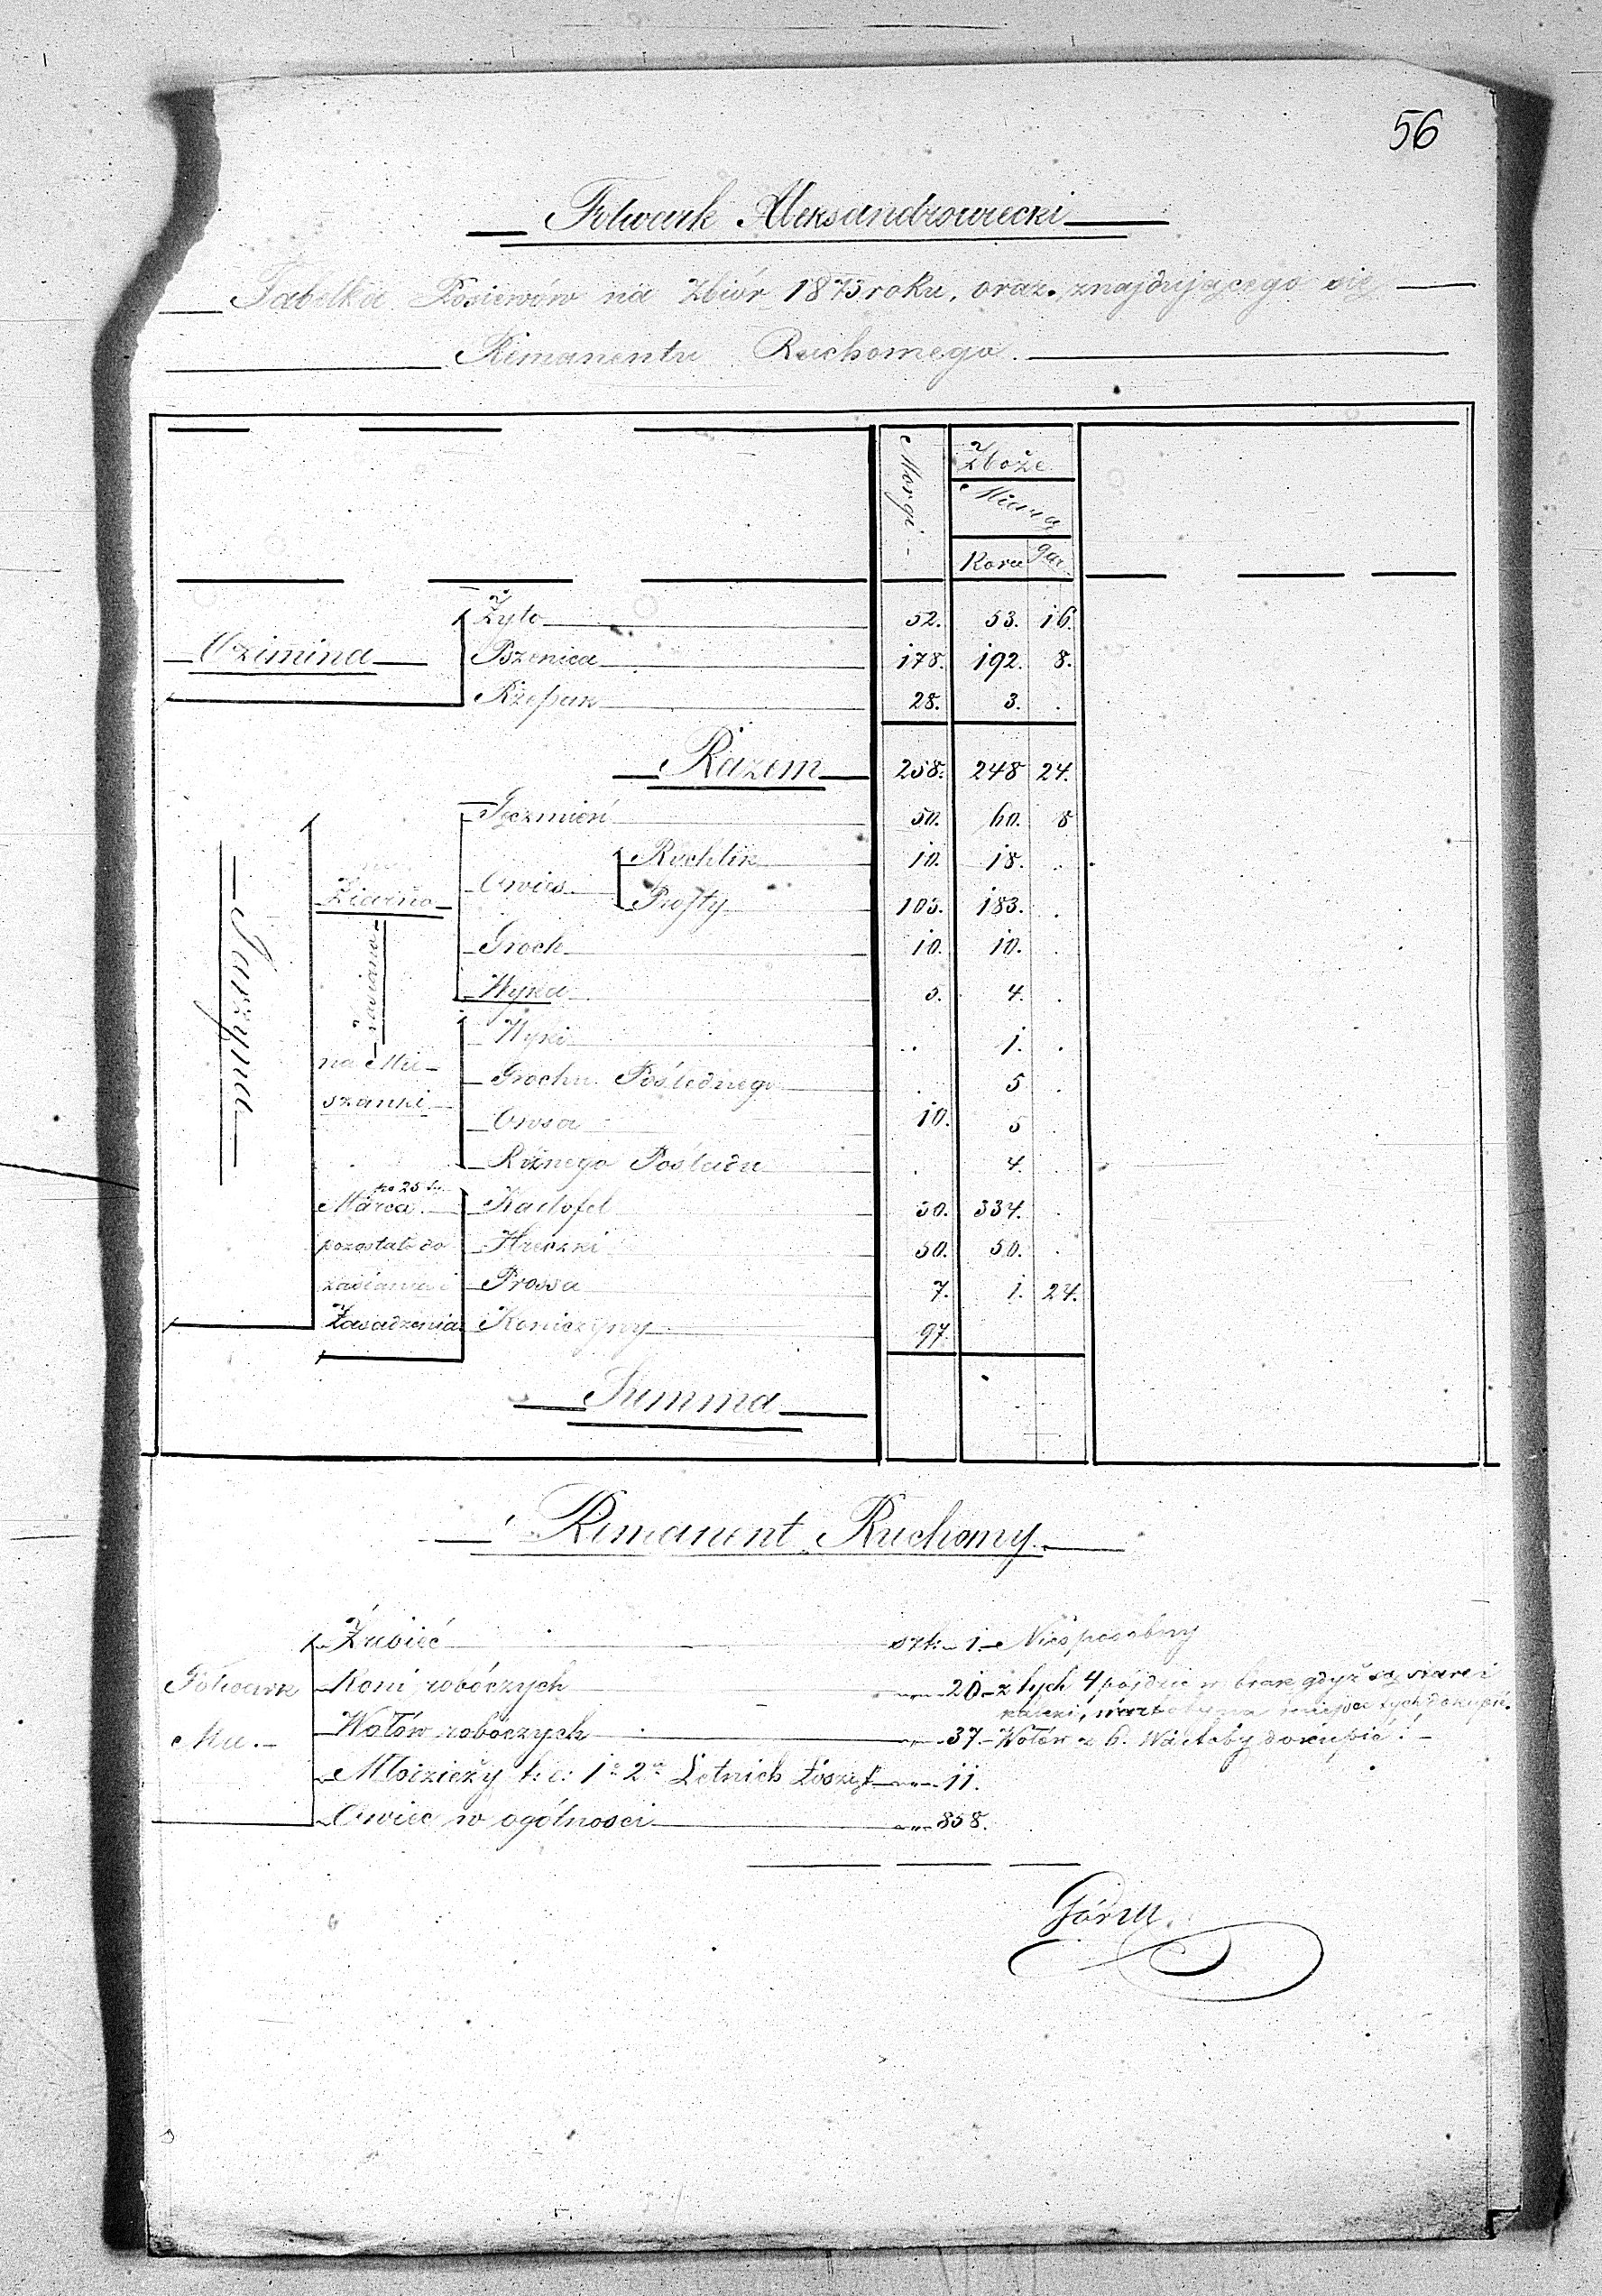 56
Folwark Aleksandrowiecki
Tabelka Posiewów na Zbiór 1873 roku, oraz znajdującego się
Rimanentu Ruchomego.
Morgi
Zboże
Miara
Korcu gar.
Ozimina
Żyto 52. 53. 16.
Pszenica 178. 192. 8.
Rżepak 28. 3. .
Razem 258. 248 24.
Jarzyna
na Ziarno
Zasiano
Jęczmień 50. 60. 8
Owies Rychlik 10. 18. .
Prosty 105. 183. .
Groch 10. 10. .
Wyka 5. 4. .
na Mie-
szanki
Wyki . 1. .
Grochu Pośledniego . 5 .
Owsa 10. 5 .
Rżnego Pośladu . 4. .
po 25
Marca
pozostało do
zasiania i
Zasadzenia
Kartofel 50. 334. .
Hreczki 50. 50. .
Prossa 7. 1. 24.
Koniczyny 97.
Summa
Rimanent Ruchomy
Folwark
Ma.
Źrebieć szt. 1. Niesposobny
Koni roboczych 20 z tych 4 pójdzie w brak gdyż są stare i
Wołów roboczych 37. Wołów z 6. Wartoby dokupić.
Młodzieży t: e: 1º 2º Letnich Łosząt 11.
Owiec w ogólnosci 858.